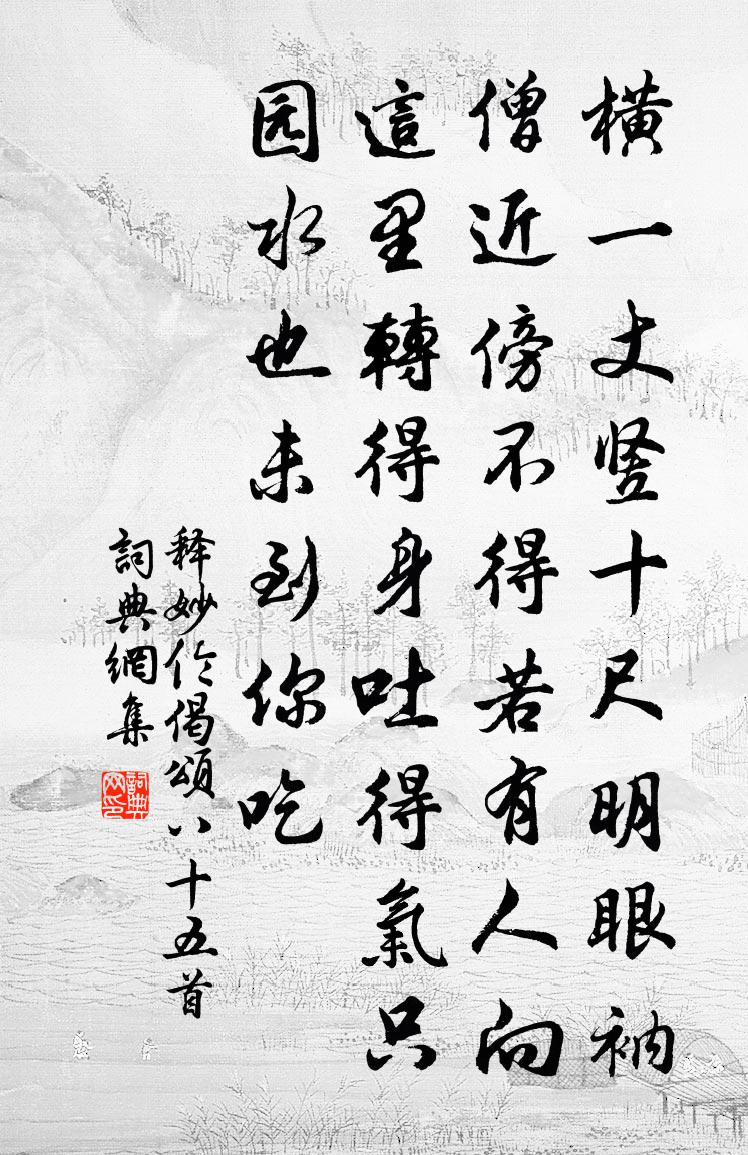 橫一丈竖十尺明眼衲
僧近傍不得若有人向
這里轉得身吐得氣只
园水也未到你吃
释妙伦偈頌八十五首
詞典網集
詞典网印